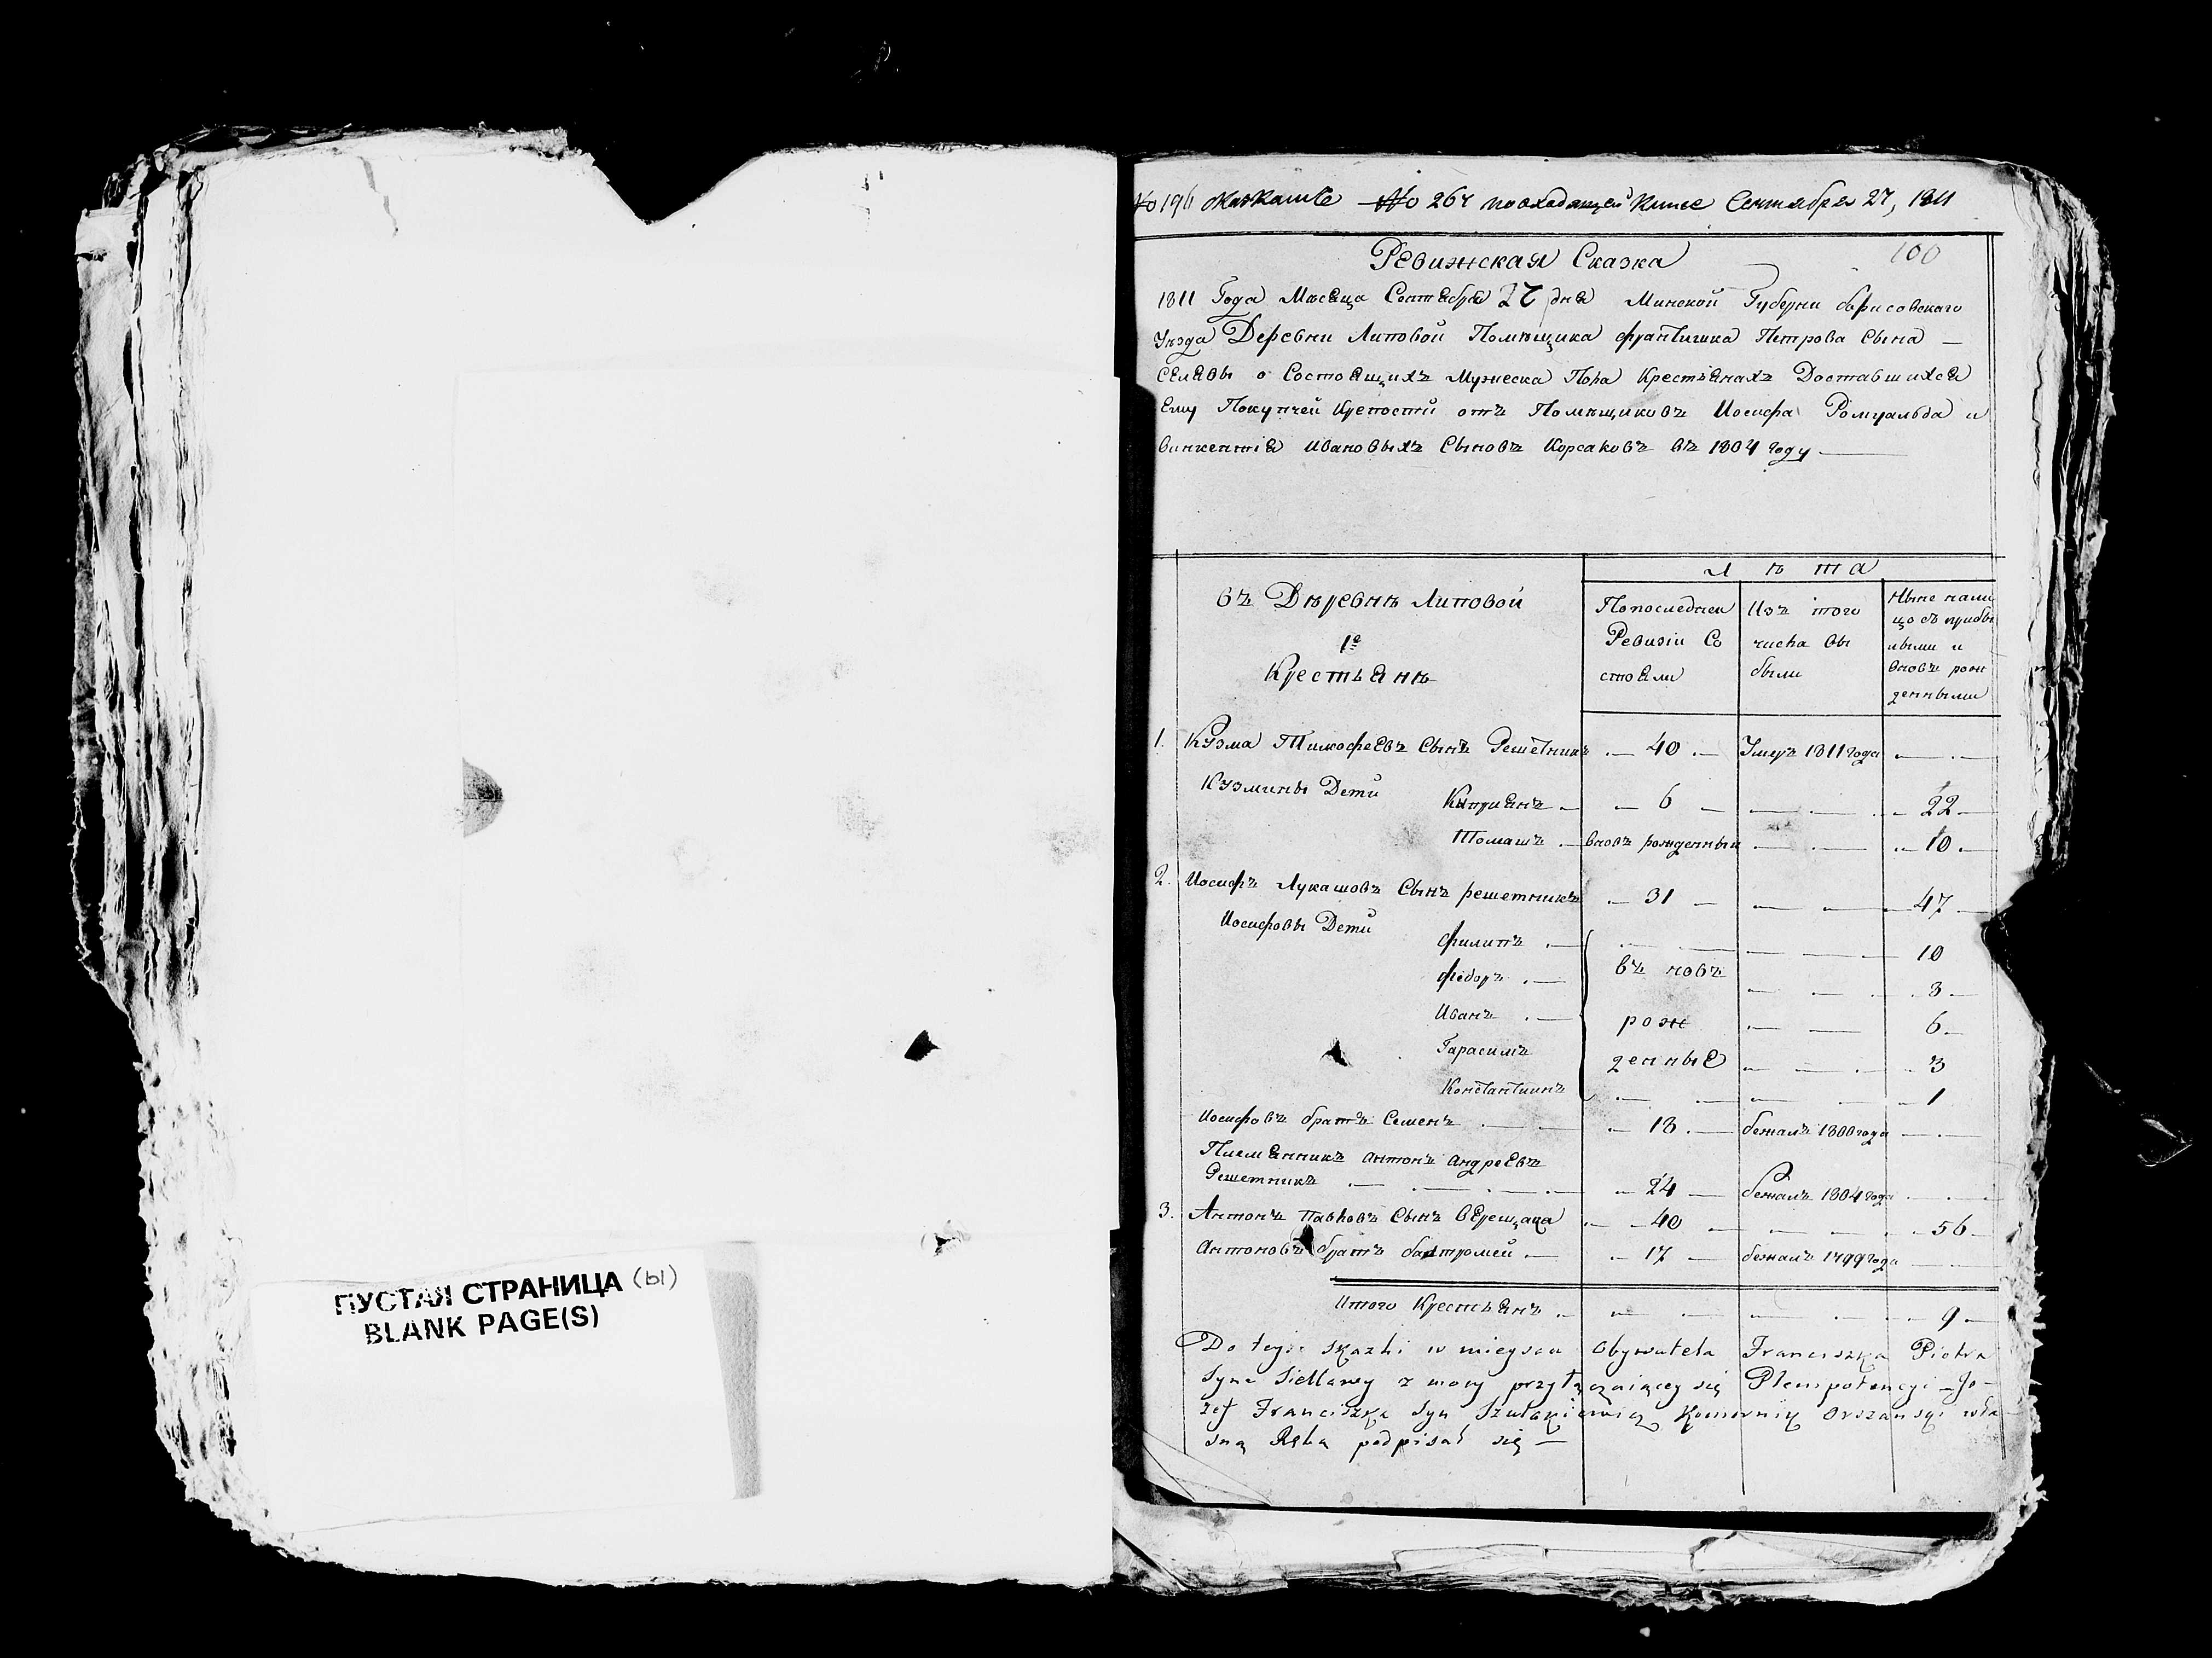 № 264 по входящей книге Сентября 27, 1811
100
Ревижская Сказка
1811 Года Месяца Сентября 27 дня Минской Губерни борисовскаго
Уезда Деревни Липовой Помещика францишка Петрова Сына —
Селявы о Состоящихъ Мужеска Пола Крестьянахъ Доставшихся
Ему Покупчей Крепости отъ Помещиковъ Иосифа Ромуальда и
винкентія Ивановыхъ Сыновъ Корсаковъ въ 1804 году —
Л ѣ т а
въ Дѣревнѣ Липовой
1е
Крестьянѣ
Попоследнеи Ревизіи Со стояли
Изъ того числа вы были
Ныне нали цо съ прибы лыми и вновъ рож денными
1. Кузма Тимофеевъ Сынъ Решетникъ — 40 — Умеръ 1811 года — . —
Кузмины Дети
Киприянъ — — 6 — — — 22 —
Томашъ — вновъ рожденный — — — 10 —
2. Иосифъ Лукашовъ Сынъ решетникъ — 31 — — — — 47 —
Иосифовы Дети
филипъ — — — — — 10
федоръ — въ новъ — — 3 —
Иванъ — рож — — 6 —
Гарасимъ денные — — 3
Константинъ — — — — 1
Иосифовъ братъ Семенъ — — 18 — бежалъ 1800 года — —
Племянникъ антонъ андреевъ
Решетникъ — — — — 24 — бежалъ 1804 года — —
3. Антонъ павловъ Сынъ верещака — 40 — — — 56 —
Антоновъ братъ бартромей — — 17 — бежалъ 1799 года — —
Итого Крестьянъ — — — — — 9 —
Do tey skazki w mieyscu Obywatela Franciszka Piotra
Syna Siellawy z mocy przyłączaiącey się Plenipotencyi Jo-
zef Franciszka Syn Szulakiewicz Komornik Orszanski wła
sną Ręką podpisał się —
ПУСТАЯ СТРАНИЦА (ы)
BLANK PAGE(S)